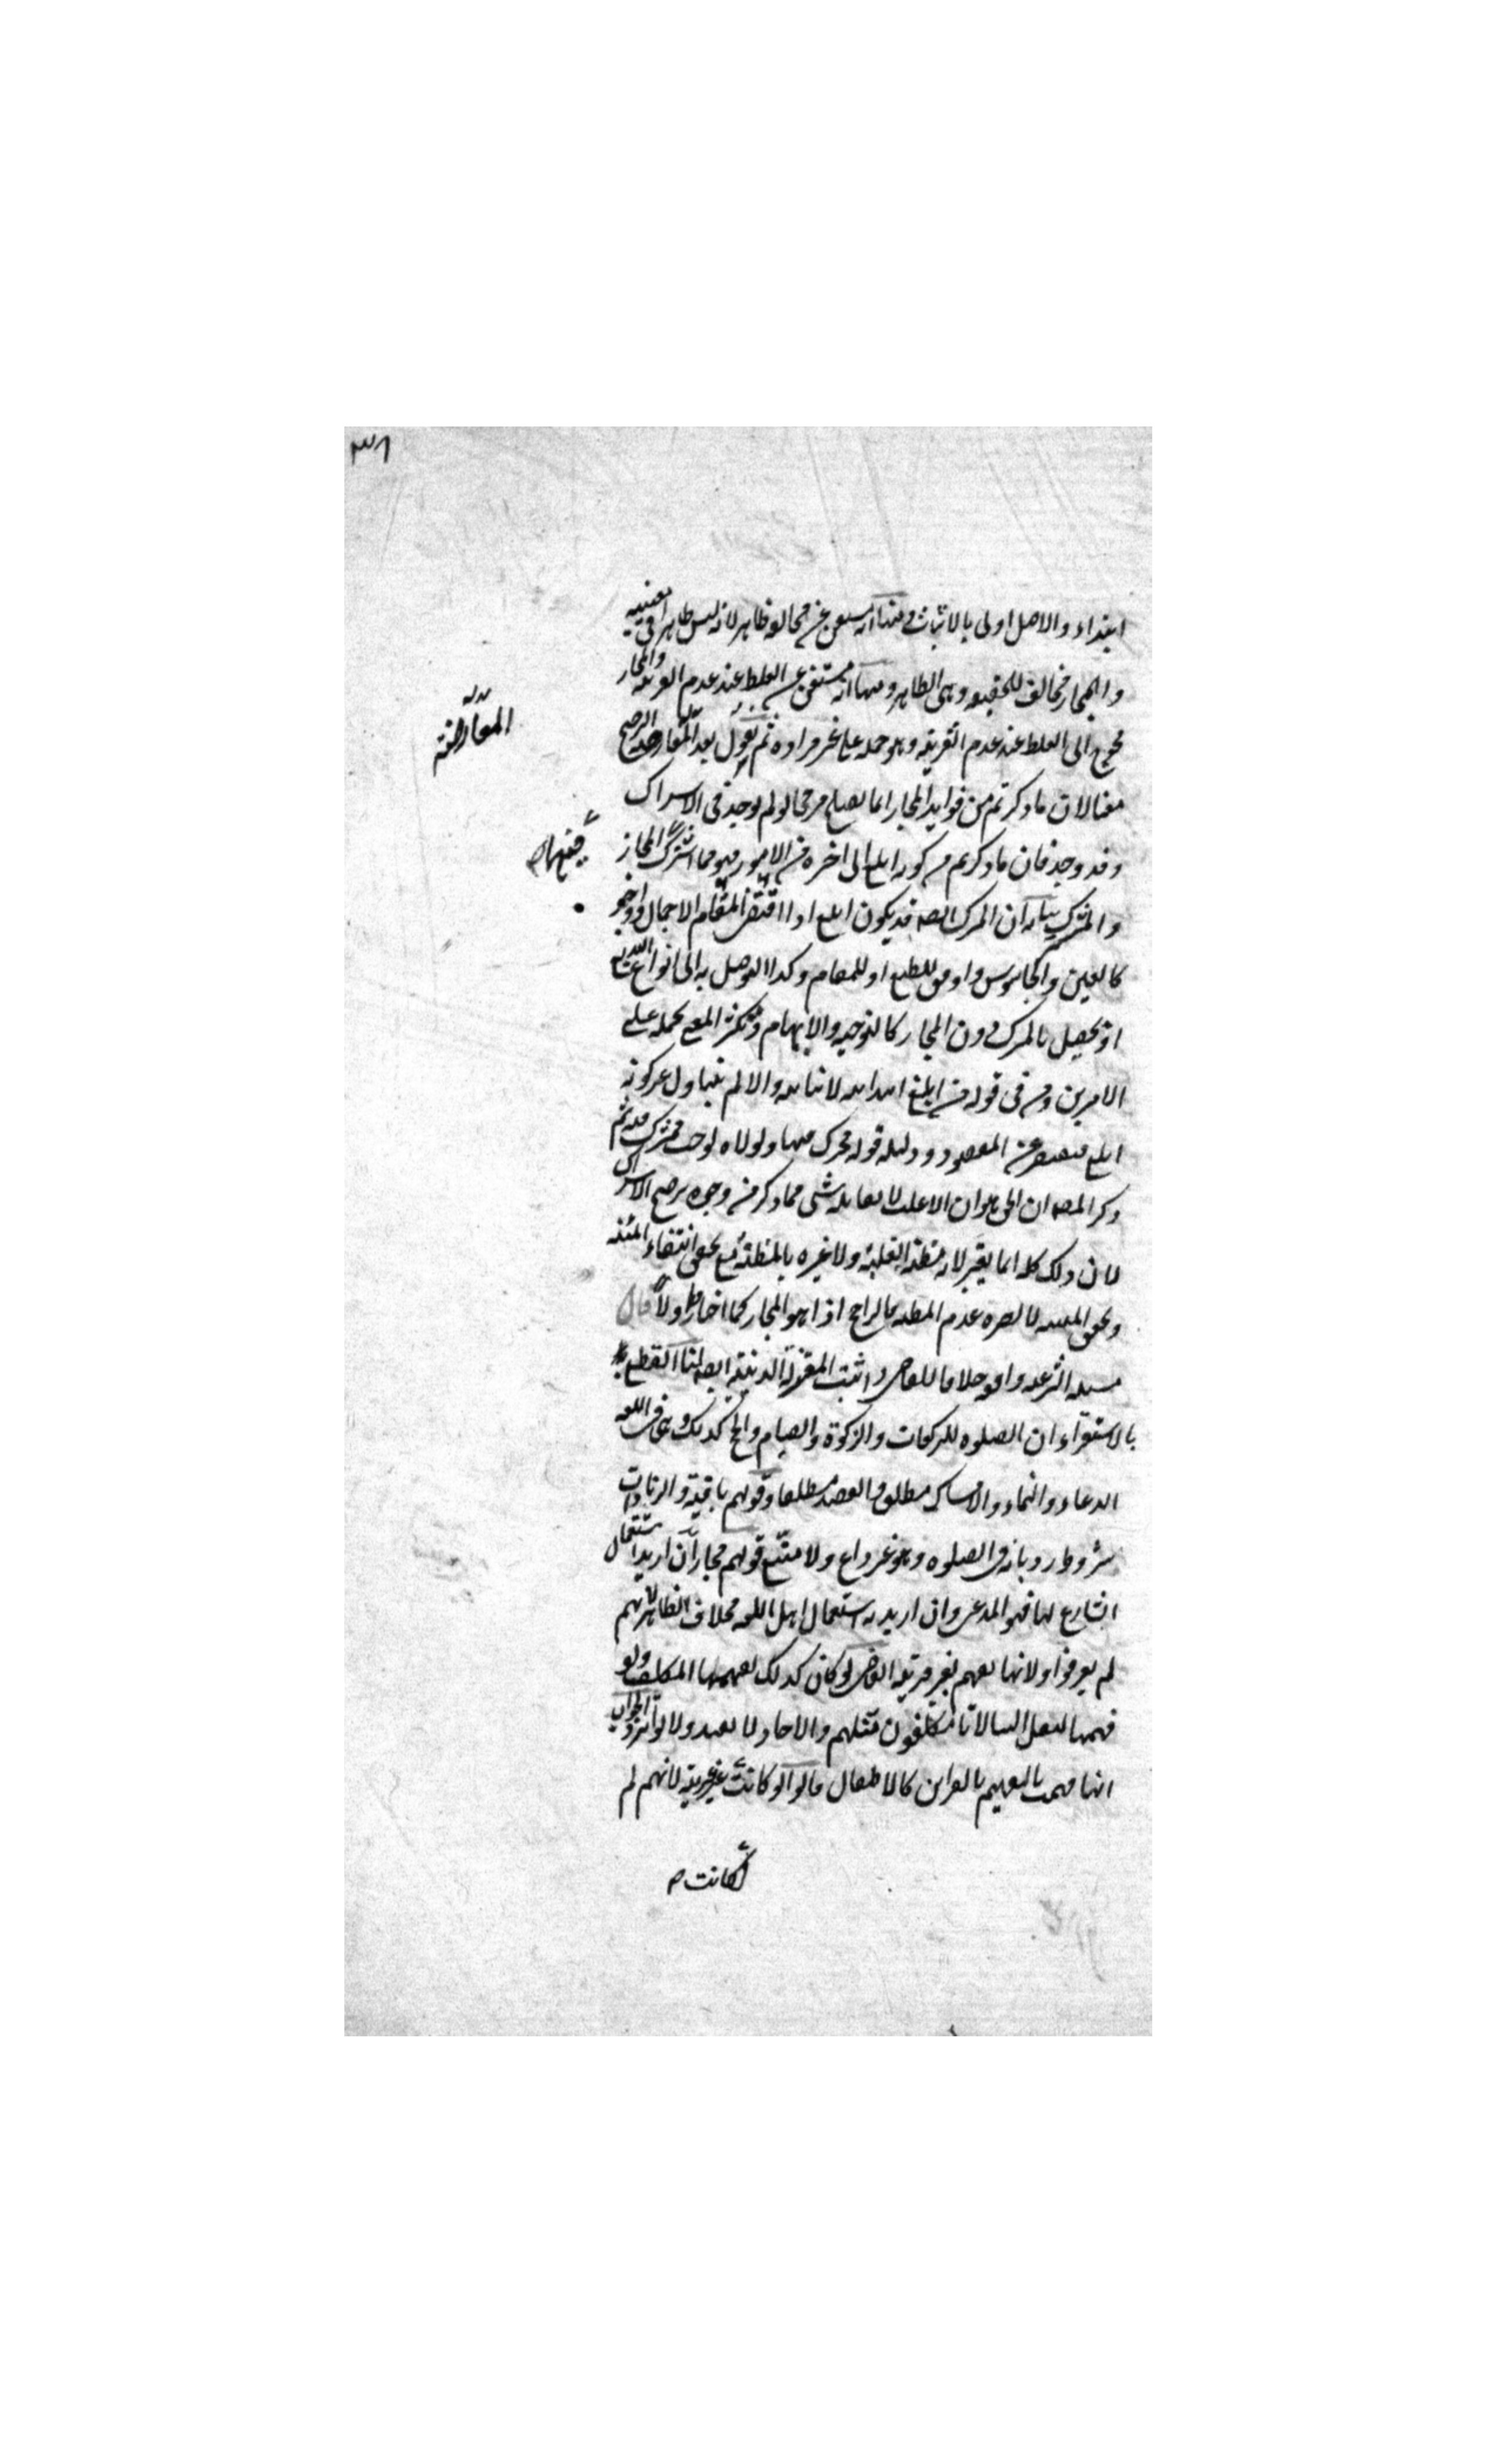 ٣٨
ابتداء والاصل اولى بالاثبات ومنها انه مستغن عن مخالفة ظاهر لانه ليس ظاهرا فى معنييه
والمجاز مخالف للحقيقة وهى الظاهر ومنها انه مستغن عن الغلط عند عدم القرينة والمجاز
محوج الى الغلط عند عدم القرينة وهو حمله على غير مراده ثم يقول بعد المعارضة الترجيح
المعارضة
معنا لان ما ذكرتم من فوايد المجاز انما يصلح مرجحا لو لم يوجد فى الاشتراك
وقد وجد فان ما ذكرتم من كونه ابلغ الى اخره من الامور فهو مما اشترك المجاز
فيها
والمشترك بيانه ان المشترك ايضا قد يكون ابلغ اذا اقتضى المقام الاجمال واوجز
كالعين والجاسوس واوفق للطبع او للمقام وكذا التوصل به الى انواع البديع
اذ يحصل بالمشترك دون المجاز كالتوجيه والايهام وتكثر المعنى بحمله على
الامرين ومن فى قوله من ابلغ ابتدائية لا بيانية والا لم يتناول غير كونه
ابلغ فيقصر عن المقصود ودليله قوله مشترك فيها ولولاه لوجب مشترك فيه ثم
ذكر المصنف ان الحق هو ان الاغلب لا يقابله شئ مما ذكر من وجوه ترجيح الاشتراك
لان ذلك كله انما يعتبر لانه مظنة الغلبة ولا عبرة بالمظنة مع تحقق انتفاء المئنة
وتحقق المئنة لا يضره عدم المظنة فالراجح اذا هو المجاز كما اختاره اولا قال
مسئلة الشرعية واقعة خلافا للقاضى واثبت المعتزلة الدينية ايضا لنا القطع
بالاستقراء ان الصلوة للركعات والزكوة والصيام والحج كذلك وهى فى اللغة
الدعاء والنماء والامساك مطلقا والقصد مطلقا وقولهم باقية والزيادات
شروط رد بانه فى الصلوة وهو غير داع ولا متبع قولهم مجاز ان اريد استعمال
الشارع لها فهو المدعى وان اريد به استعمال اهل اللغة فخلاف الظاهر لانهم
لم يعرفوا ولانها تفهم بغير قرينة القاضى لو كان كذلك لفهمها المكلف ولو
فهمها لنقل الينا لانا مكلفون مثلهم والاحاد لا يفيد ولا تواتر والجواب
انها فهمت بالتفهيم بالقراين كالاطفال قالوا لو كانت غير عربية لانهم لم
لكانت